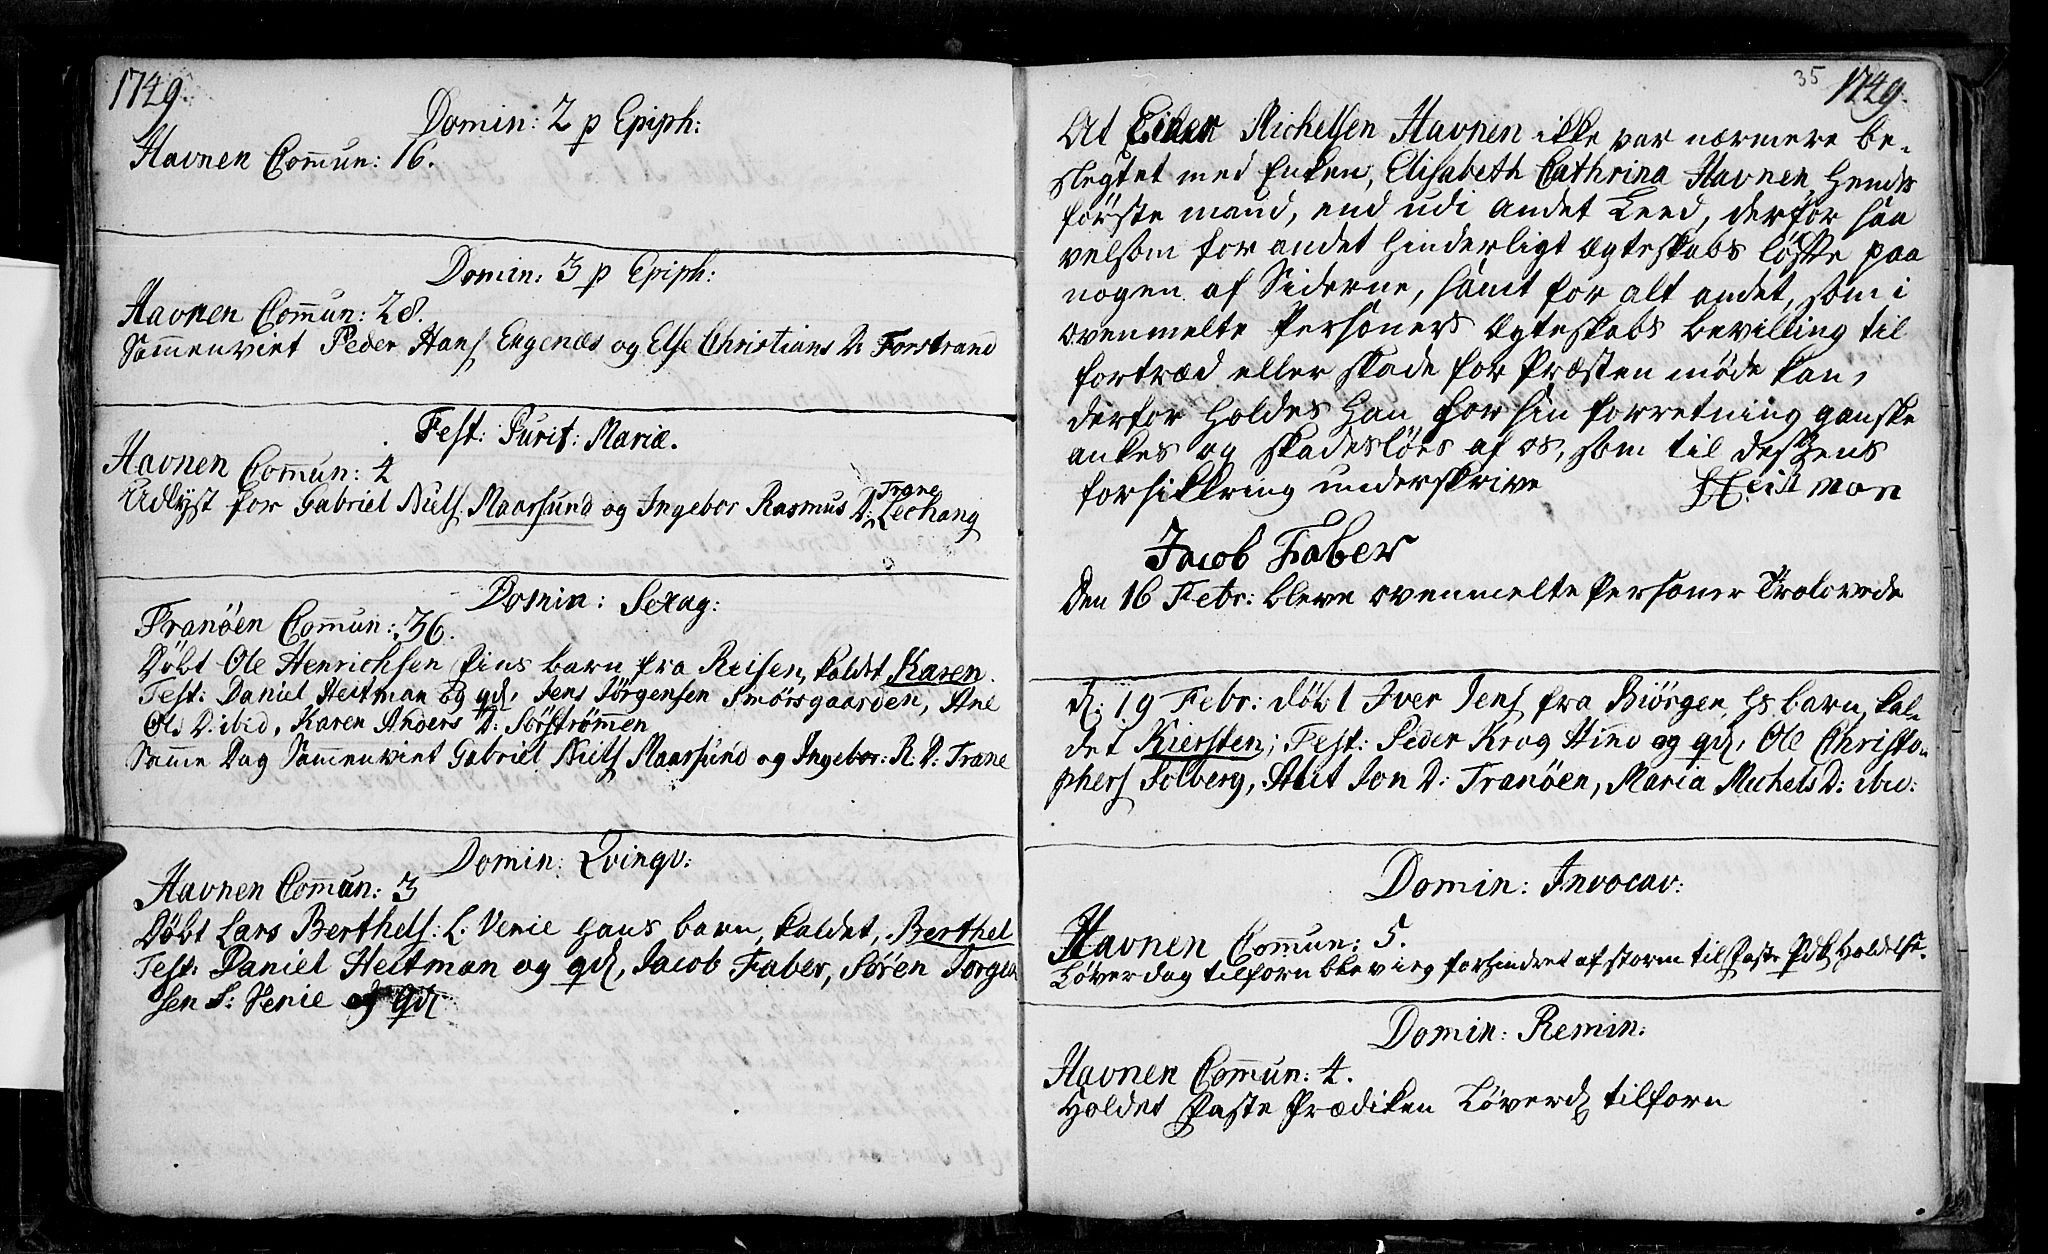 1749.
Domin: 2 p Epiph:
Havnen Comun: 16.
Domin: 3 p Epiph:
Havnen Comun: 28.
Sammenviet Peder Hans Engenæs og Else Christians D: Forstrand
Fest: Purif: Mariæ.
Havnen Comun: 4
Udlyst for Gabriel Niels Maarsund og Ingebor Rasmus D: Trane
Domin: Sexag:
Tranöen Comun: 36.
Döbt Ole Henrichsen Fins barn fra Reisen, kaldet Karen.
Test: Daniel Heitman og qd, Jens Jörgensen Smörsgaarden, Ane
Ols D: ibid, Karen Anders D: Sörströmmen
Samme Dag Sammenviet Gabriel Niels Maarsund og Ingebor: R. D: Trane
Domin: Qvinqv:
Havnen Comun: 3
Döbt Lars Berthels: L: Venie hans barn, kaldet, Berthel
Test: Daniel Heitman og qd, Jacob Faber, Sören Jörgen
sen S: Venie og qd
35 1749.
At Eider Michelsen Havnen ikke var nærmere be-
slegtet med Enken, Elisabeth Cathrina Havnen, hendes
förste mand, end udi andet Leed, derfor saa
velsom for andet hinderligt ægteskabs löfte paa
nogen af Siderne, samt for alt andet, som i
ovenmelte Persohners ægteskabs bevilling til
fortræd eller skade for Præsten möde kan,
derfor holdes han for sin forretning ganske
ankes og skadeslöes af os, som til desszens
forsikkring underskrive Heitman
Jacob Faber
Den 16 Febr: bleve ovenmelte Personer Trolovede
d: 19 Febr: döbt Iver Jens fra Biörgen, hs barn, kal-
det Kiersten; Test: Peder Krog Hind og qd, Ole Christo-
phers Solberg, Alit Jon D: Tranöen, Maria Michels D: ibid:
Domin: Invocav:
Havnen Comun: 5.
Löverdag tilforn blev ieg forhindret af storm til Faste Pdk holdelse.
Domin: Remin:
Havnen Comun: 4.
Holdet Faste Prædiken Löverd tilforn